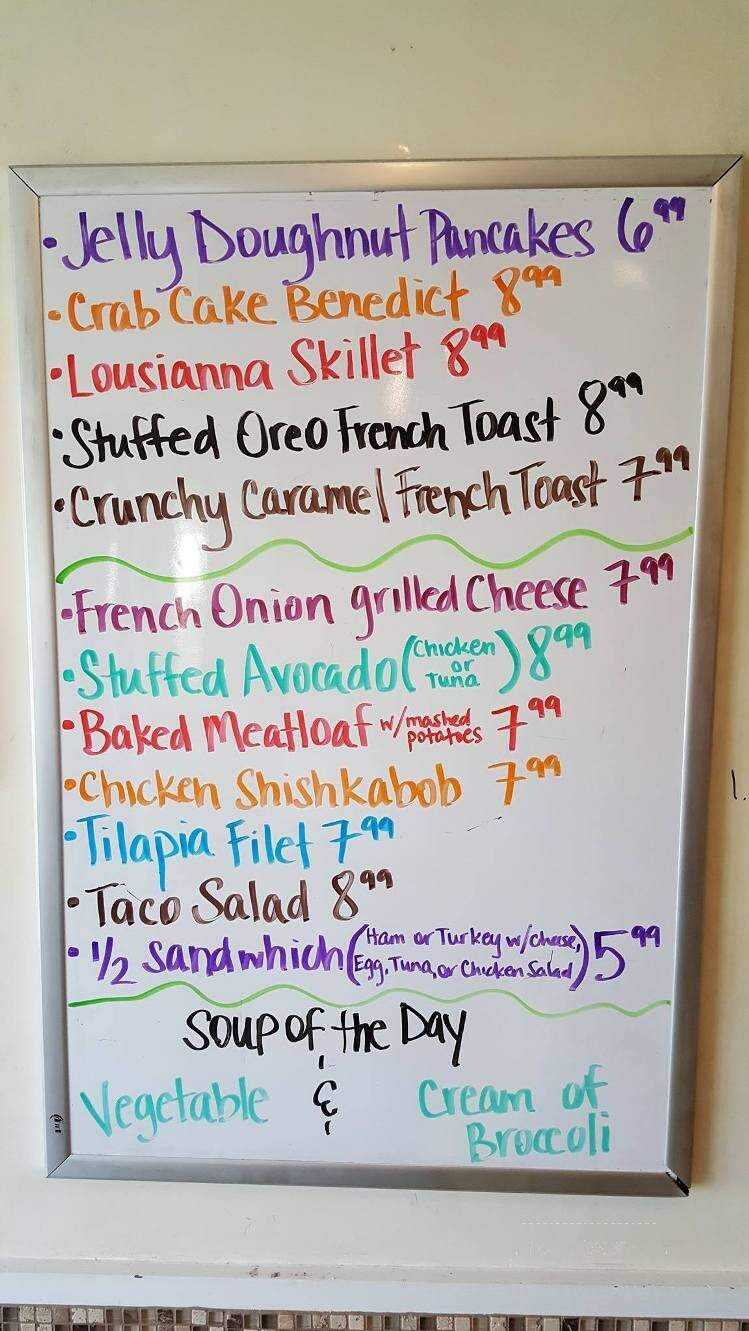 • Jelly Doughnut Pancakes 6⁹⁹
• Crab Cake Benedict 8⁹⁹
• Lousianna Skillet 8⁹⁹
• Stuffed Oreo French Toast 8⁹⁹
• Crunchy Caramel French Toast 7⁹⁹
• French Onion grilled Cheese 7⁹⁹
• Stuffed Avocado (Chicken or Tuna) 8⁹⁹
• Baked Meatloaf w/mashed potatoes 7⁹⁹
• Chicken Shishkabob 7⁹⁹
• Tilapia Filet 7⁹⁹
• Taco Salad 8⁹⁹
• 1/2 Sandwhich (Ham or Turkey w/chese, Egg, Tuna, or Chicken Salad) 5⁹⁹
Soup of the Day
Vegetable & Cream of
Broccoli